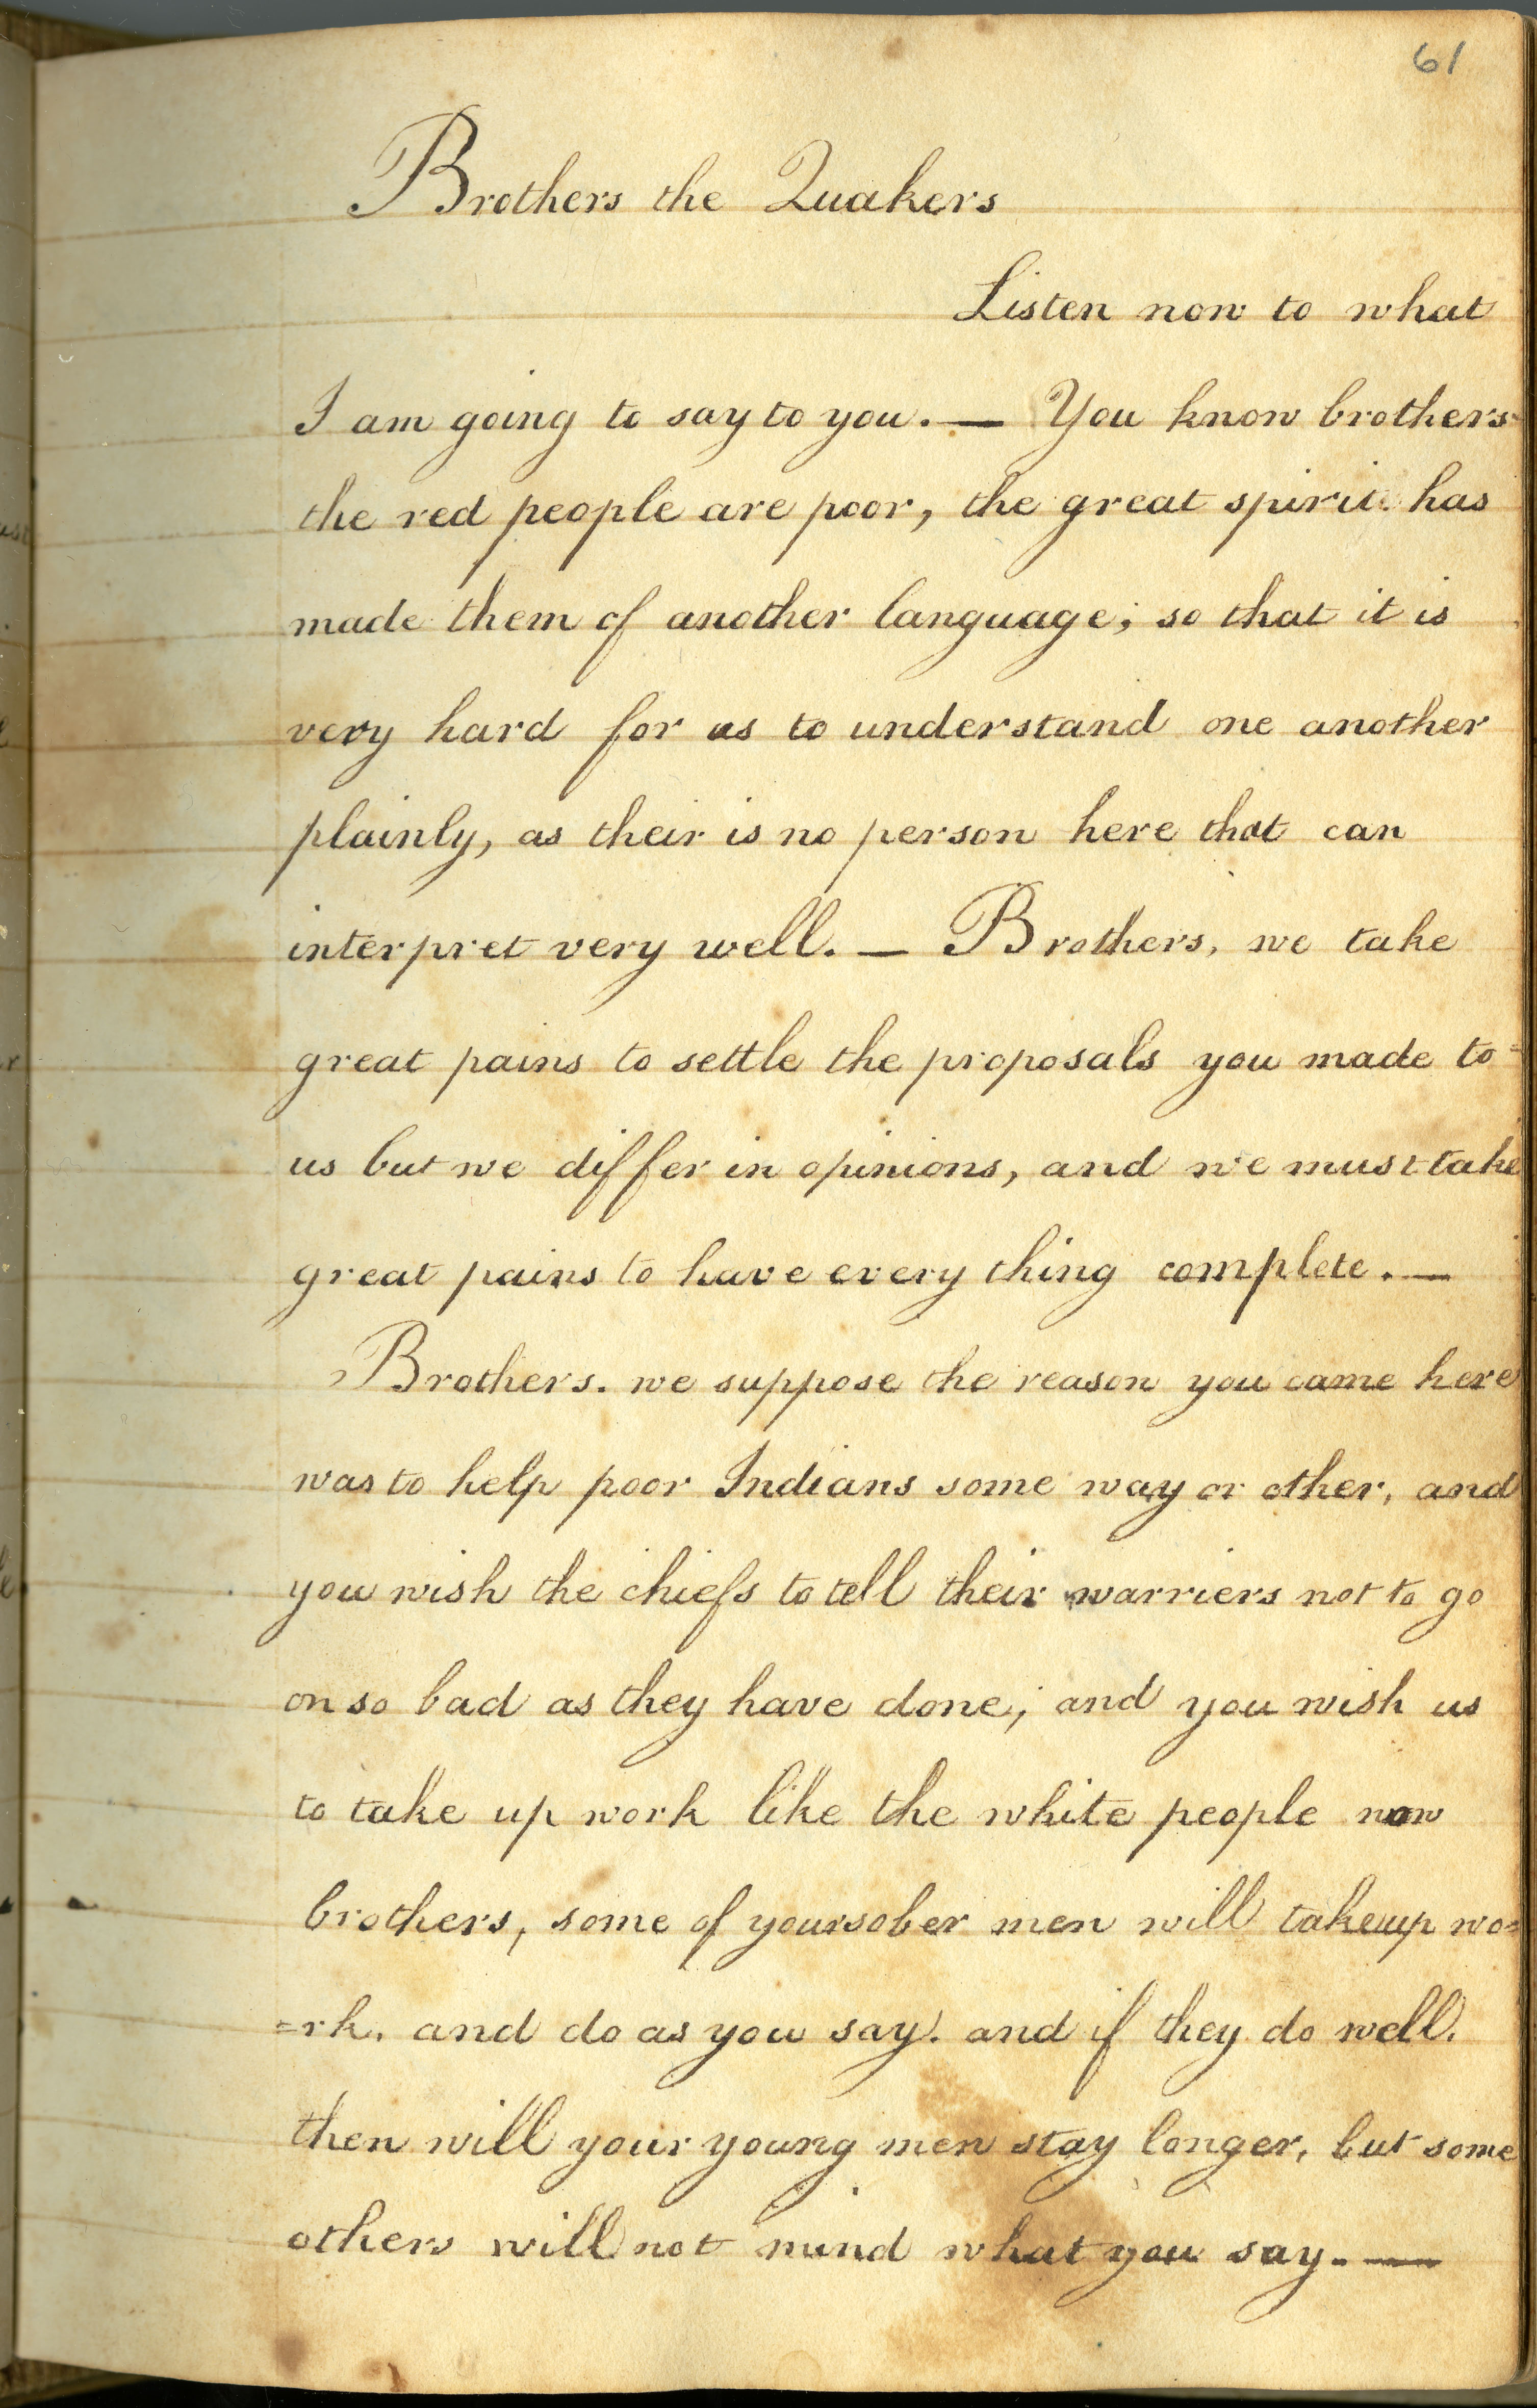 61
Brothers the Quakers
Listen now to what
I am going to say to you. — You know brothers
the red people are poor, the great spirit has
made them of another language; so that it is
very hard for us to understand one another
plainly, as their is no person here that can
interpret very well. — Brothers, we take
great pains to settle the proposals you made to
us but we differ in opinions, and we must take
great pains to have every thing complete. —
Brothers. we suppose the reason you came here
was to help poor Indians some way or other, and
you wish the chiefs to tell their warriers not to go
on so bad as they have done; and you wish us
to take up work like the white people now
brothers, some of your sober men will take up wo=
=rk. and do as you say. and if they do well.
then will your young men stay longer, but some
others will not mind what you say. —